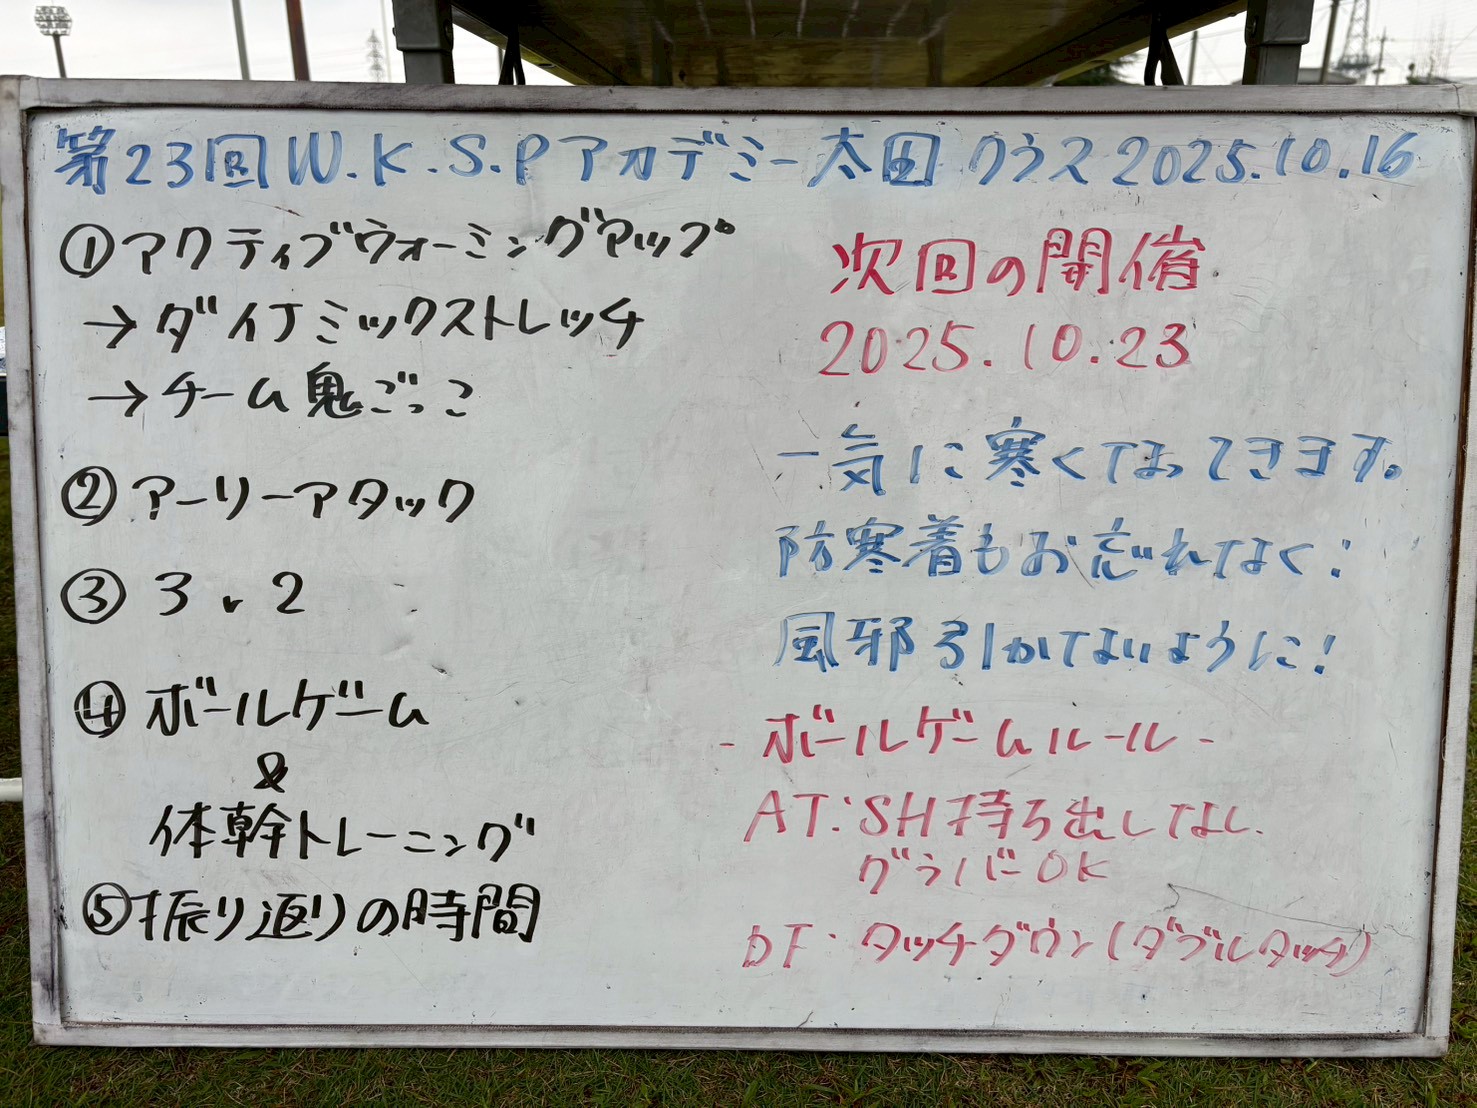 第23回W.K.S.Pアカデミー太田クラス2025.10.16
①アクティブウォーミングアップ
→ダイナミックストレッチ
→チーム鬼ごっこ
②アーリーアタック
③ 3 v 2
④ボールゲーム
&
体幹トレーニング
⑤振り返りの時間
次回の開催
2025.10.23
一気に寒くなってきます。
防寒着もお忘れなく!
風邪引かないように!
-ボールゲームルール-
AT:SH持ち出しなし
グラバーOK
DF:タッチダウン(ダブルタッチ)